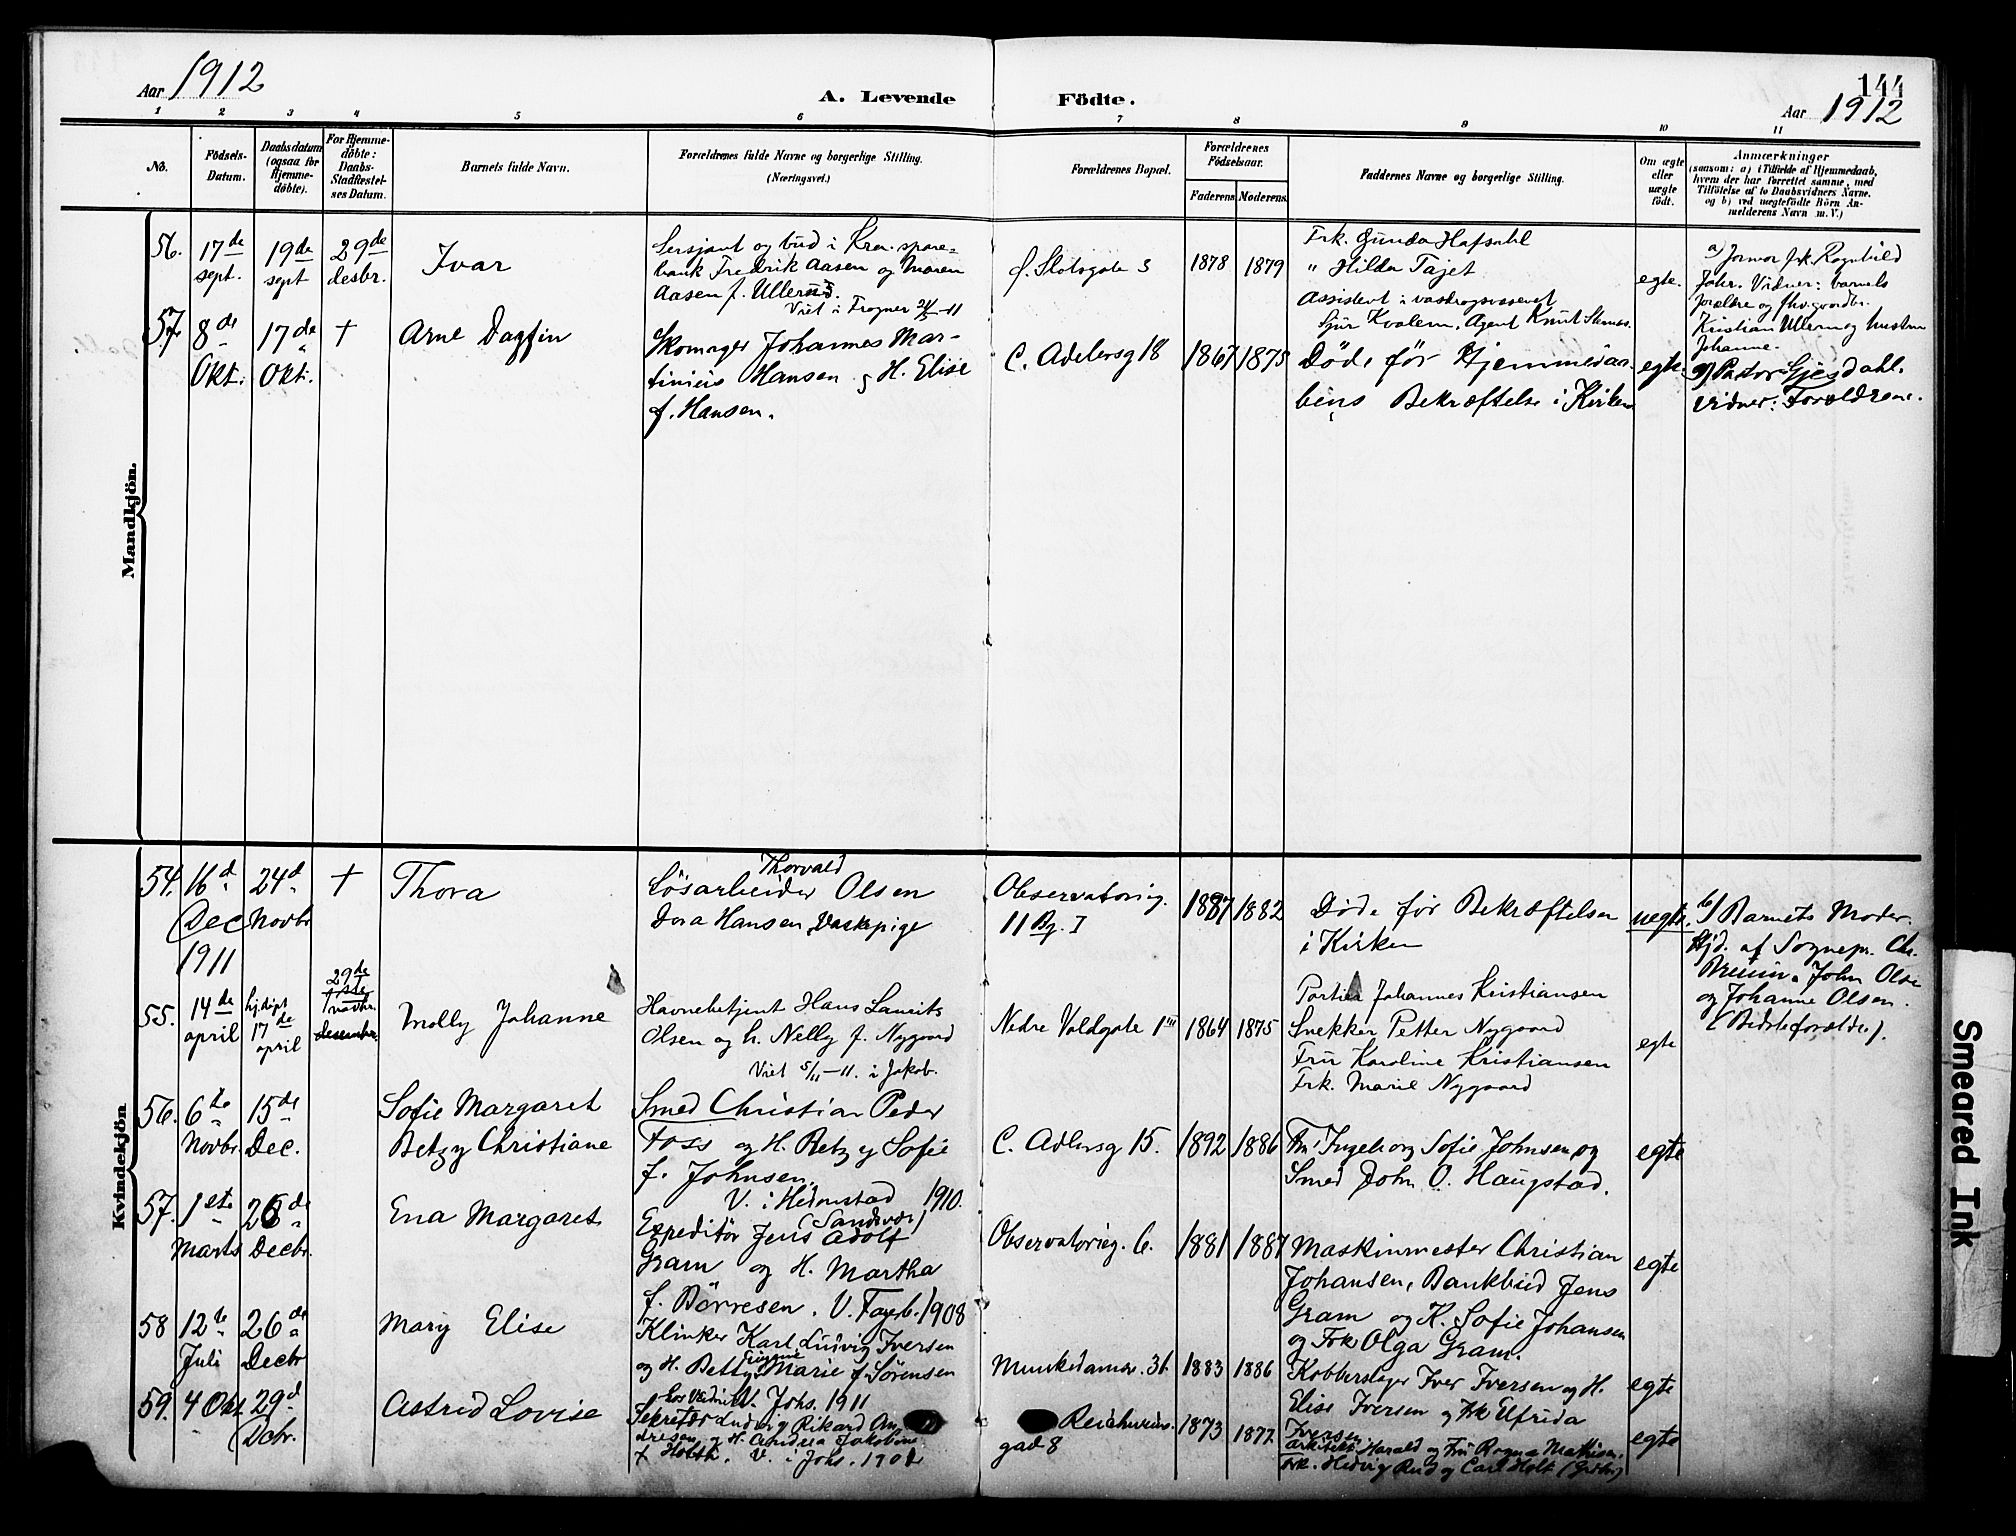 Aar 1912
A. Levende Födte.
144
Aar 1912
1 2 3 4 5 6 7 8 9 10 11
No.
Födsels-
Datum.
Daabsdatum
(ogsaa for
Hjemme-
döbte).
For Hjemme-
döbte:
Daabs-
Stadfæstel-
ses Datum.
Barnets fulde Navn.
Forældrenes fulde Navne og borgerlige Stilling.
(Næringsvei.)
Forældrenes Bopæl.
Forældrenes
Födselsaar.
Faderens Moderens
Faddernes Navne og borgerlige Stilling.
Om ægte
eller
uægte
födt.
Anmærkninger
(saasom: a) i Tilfælde af Hjemmedaab,
hvem der har forrettet samme, med
Tilföielse af to Daabsvidners Navne.
og b) ved uægtefödte Börn An-
melderens Navn m. V.)
Mandkjön.
56.
17de
sept.
19de
sept
29de
desbr.
Ivar
Sersjant og bud i Kra. spare-
bank Fredrik Aasen og Maren
Aasen f. Ullerud.
Viet i Frogner
f. Slotsgate 3
1878
1879
Frk. Gunda Hafsahl
" Hilda Tajet
Assistent i vasdragsvesenet
Sjur Kvalem, Agent Knut
egte.
a) Jormor frk. Ragnhild
Johr. Vidner: barnets
forældre og
Kristian Ullern og hustru
Johanne.
57.
8de
Okt.
17de
Okt.
†
Arne Dagfin
Skomager Johannes Mar-
tinius Hansen og H. Elise
f. Hansen.
C. Adelersg 18
1867
1875
Döde för Hjemmedaa-
bens Bekræftelse i Kirken
egte.
a) Pastor Gjesdahl.
Vidner: Forældrene.
Kvindekjön
54.
16d
Dec
1911
24d
Novbr
†
Thora
Thorvald
Lösarbeider Olsen
Dora Hansen, Vaskepige
Observatorieg.
11 Bg. I
1887
1882
Döde för Bekræftelsen
i Kirken
uegte.
b) Barnets Moder.
Hjd. af Sognepr. Chr.
Bruun. John Olsen
og Johanne Olsen.
(Bedsteforældre).
55.
14de
april
hj.döpt
17de
april
29de
1ste
novbr.
desember.
Molly Johanne
Havnebetjent Hans Laurits
Olsen og h. Nelly f. Nygaard
Viet 5/11-11. i Jakob.
Nedre Voldgate 1III
1864
1875
Portier Johannes Kristiansen
Snekker Petter Nygaard
Fru Karoline Kristiansen
Frk. Marie Nygaard
egte
56.
6te
Novbr.
15de
Dec.
Sofie Margaret
Betzy Christiane
Smed Christian Peder
Foss og H. Betzy Sofie
f. Johnsen.
V. i Hedenstad 1910.
(Sandsvær)
C. Adlersg 15.
1892
1886
Fru Ingeborg Sofie Johnsen og
Smed John O. Haugstad.
egte
57.
1ste
Marts
26de
Decbr.
Ena Margaret
Expeditör Jens Adolf
Gram og H. Martha
f. Börresen. V. Fageb. 1908
Observatorieg. 6.
1881
1887
Maskinmester Christian
Johansen, Bankbud Jens
Gram og K. Sofie Johansen
og Frk Olga Gram.
egte
58
12te
Juli
26de
Decbr
Mary Elise
Klinker Karl Ludvig Iversen
og H. Betty Marie f. Sörensen
V. Johs. 1911
Munkedamsv. 3b
1883
1886
Kobberslager Iver Iversen og H.
Elise Iversen og Frk Elfrida
Iversen
egte
59.
4 Okt
29d
Dcbr.
Astrid Lovise
Sekretær Ludvig Rikard An-
dresen og H. Andrea Jakobine
f. Holth. V. i Johs. 1901
Reichweins-
gad 8
1873
1877
Arkitekt Harald og Fru Ragna Mathisen.
Frk. Hedvig Rud og Carl Holt
egte
Smeared Ink